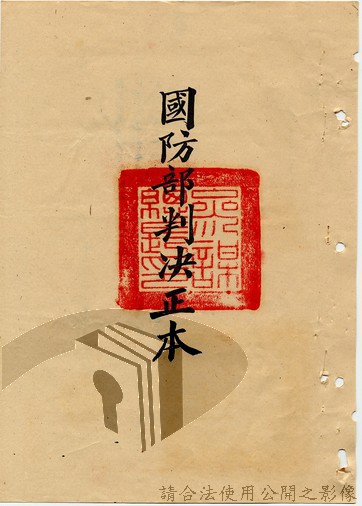 國防部判決正本
請合法使用公開之影像